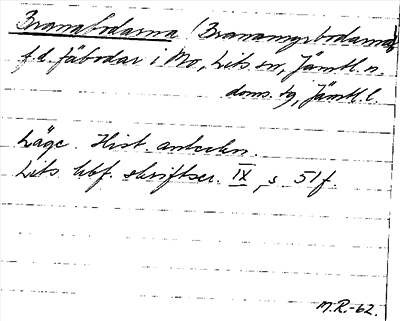 Branabodarna (Branamyrbodarna)
f.d. fäbodar i Mo, Lits sn, Jämtl. n.
doms. tg, Jämtl. l.
Läge. Hist. anteckn.
Lits hbf. skriftser. IX, s. 51 f.
M.R.-62.